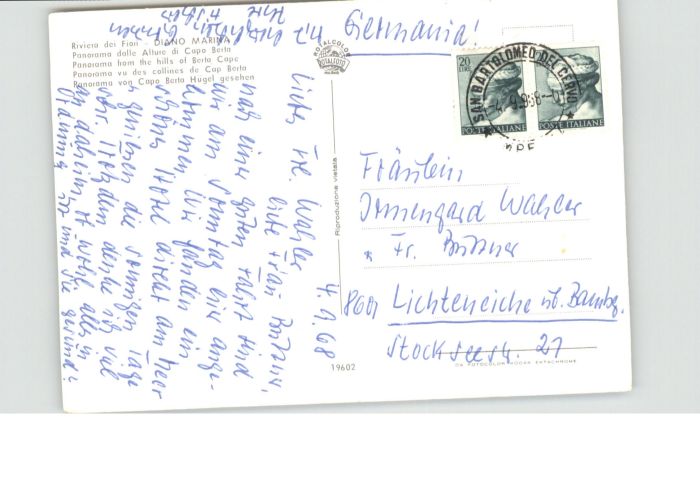 Riviera dei Fiori - DIANO MARINA
Panorama dalle Alture di Capo Berta
Panorama from the hills of Berta Cape
Panorama vu des collines de Cap Berta
Panorama von Capo Berta Hügel gesehen
ROTALCOLOR
ROTALFOTO
MILANO
Germania!
20
LIRE
POSTE ITALIANE
POSTE ITALIANE
SAN BARTOLOMEO DEL CERVO
Riproduzione vietata
4.9.68
Liebe Frl. Wahler
liebe Frau
nach einer guten Fahrt sind
wir am Sonntag hier ange-
kommen, wir fanden ein
schönes Hotel direkt am Meer
u. genießen die sonnigen Tage
sehr. Trotzdem denke ich viel
an daheim, ist wohl alles in
Ordnung und Sie gesund?
Fräulein
Irmengard Wahler
Fr.
8601 Lichteneiche üb. Bambg.
Stockseestr. 21
19602